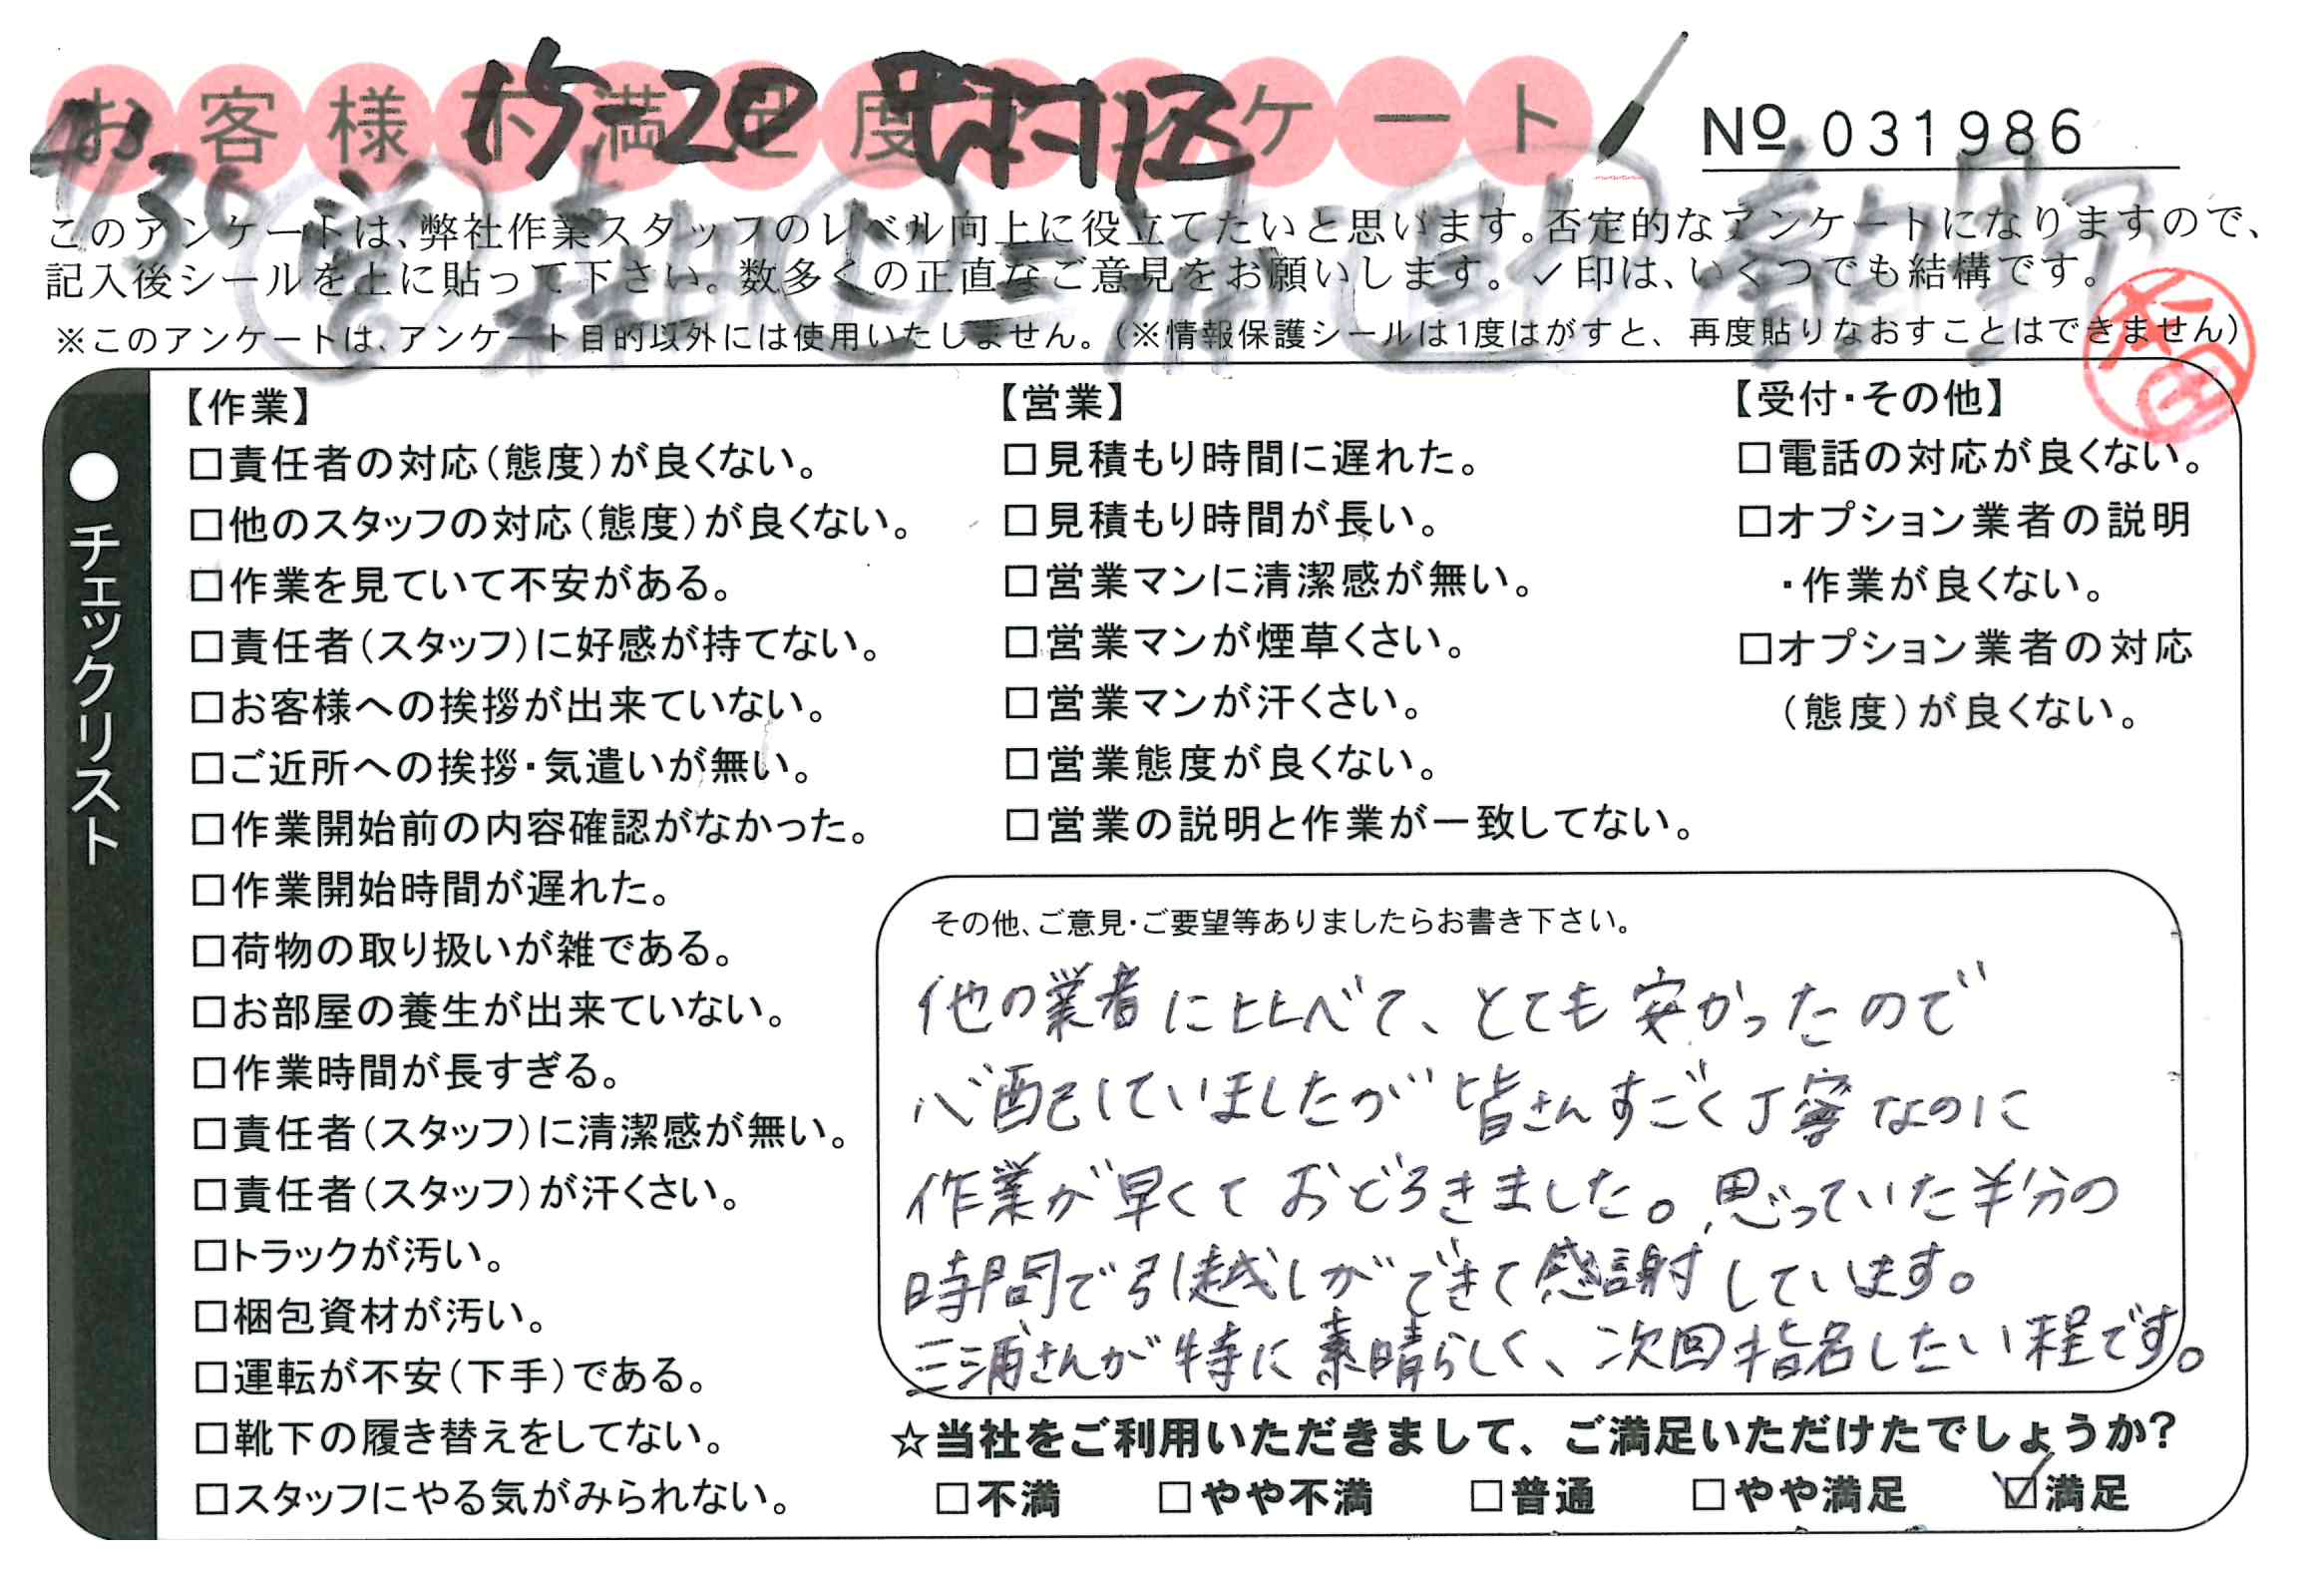 お客様不満足度アンケート
15-20
4/30
№ 031986
このアンケートは、弊社作業スタッフのレベル向上に役立てたいと思います。否定的なアンケートになりますので、
記入後シールを上に貼って下さい。数多くの正直なご意見をお願いします。✓印は、いくつでも結構です。
※このアンケートは、アンケート目的以外には使用いたしません。(※情報保護シールは1度はがすと、再度貼りなおすことはできません)
●チェックリスト
【作業】
□責任者の対応(態度)が良くない。
□他のスタッフの対応(態度)が良くない。
□作業を見ていて不安がある。
□責任者(スタッフ)に好感が持てない。
□お客様への挨拶が出来ていない。
□ご近所への挨拶・気遣いが無い。
□作業開始前の内容確認がなかった。
□作業開始時間が遅れた。
□荷物の取り扱いが雑である。
□お部屋の養生が出来ていない。
□作業時間が長すぎる。
□責任者(スタッフ)に清潔感が無い。
□責任者(スタッフ)が汗くさい。
□トラックが汚い。
□梱包資材が汚い。
□運転が不安(下手)である。
□靴下の履き替えをしてない。
□スタッフにやる気がみられない。
【営業】
□見積もり時間に遅れた。
□見積もり時間が長い。
□営業マンに清潔感が無い。
□営業マンが煙草くさい。
□営業マンが汗くさい。
□営業態度が良くない。
□営業の説明と作業が一致してない。
【受付・その他】
□電話の対応が良くない。
□オプション業者の説明
・作業が良くない。
□オプション業者の対応
(態度)が良くない。
その他、ご意見・ご要望等ありましたらお書き下さい。
他の業者に比べて、とても安かったので
心配していましたが皆さんすごく丁寧なのに
作業が早くておどろきました。思っていた半分の
時間で引越しができて感謝しています。
三浦さんが特に素晴らしく、次回指名したい程です。
☆当社をご利用いただきまして、ご満足いただけたでしょうか?
□不満 □やや不満 □普通 □やや満足 ☑満足